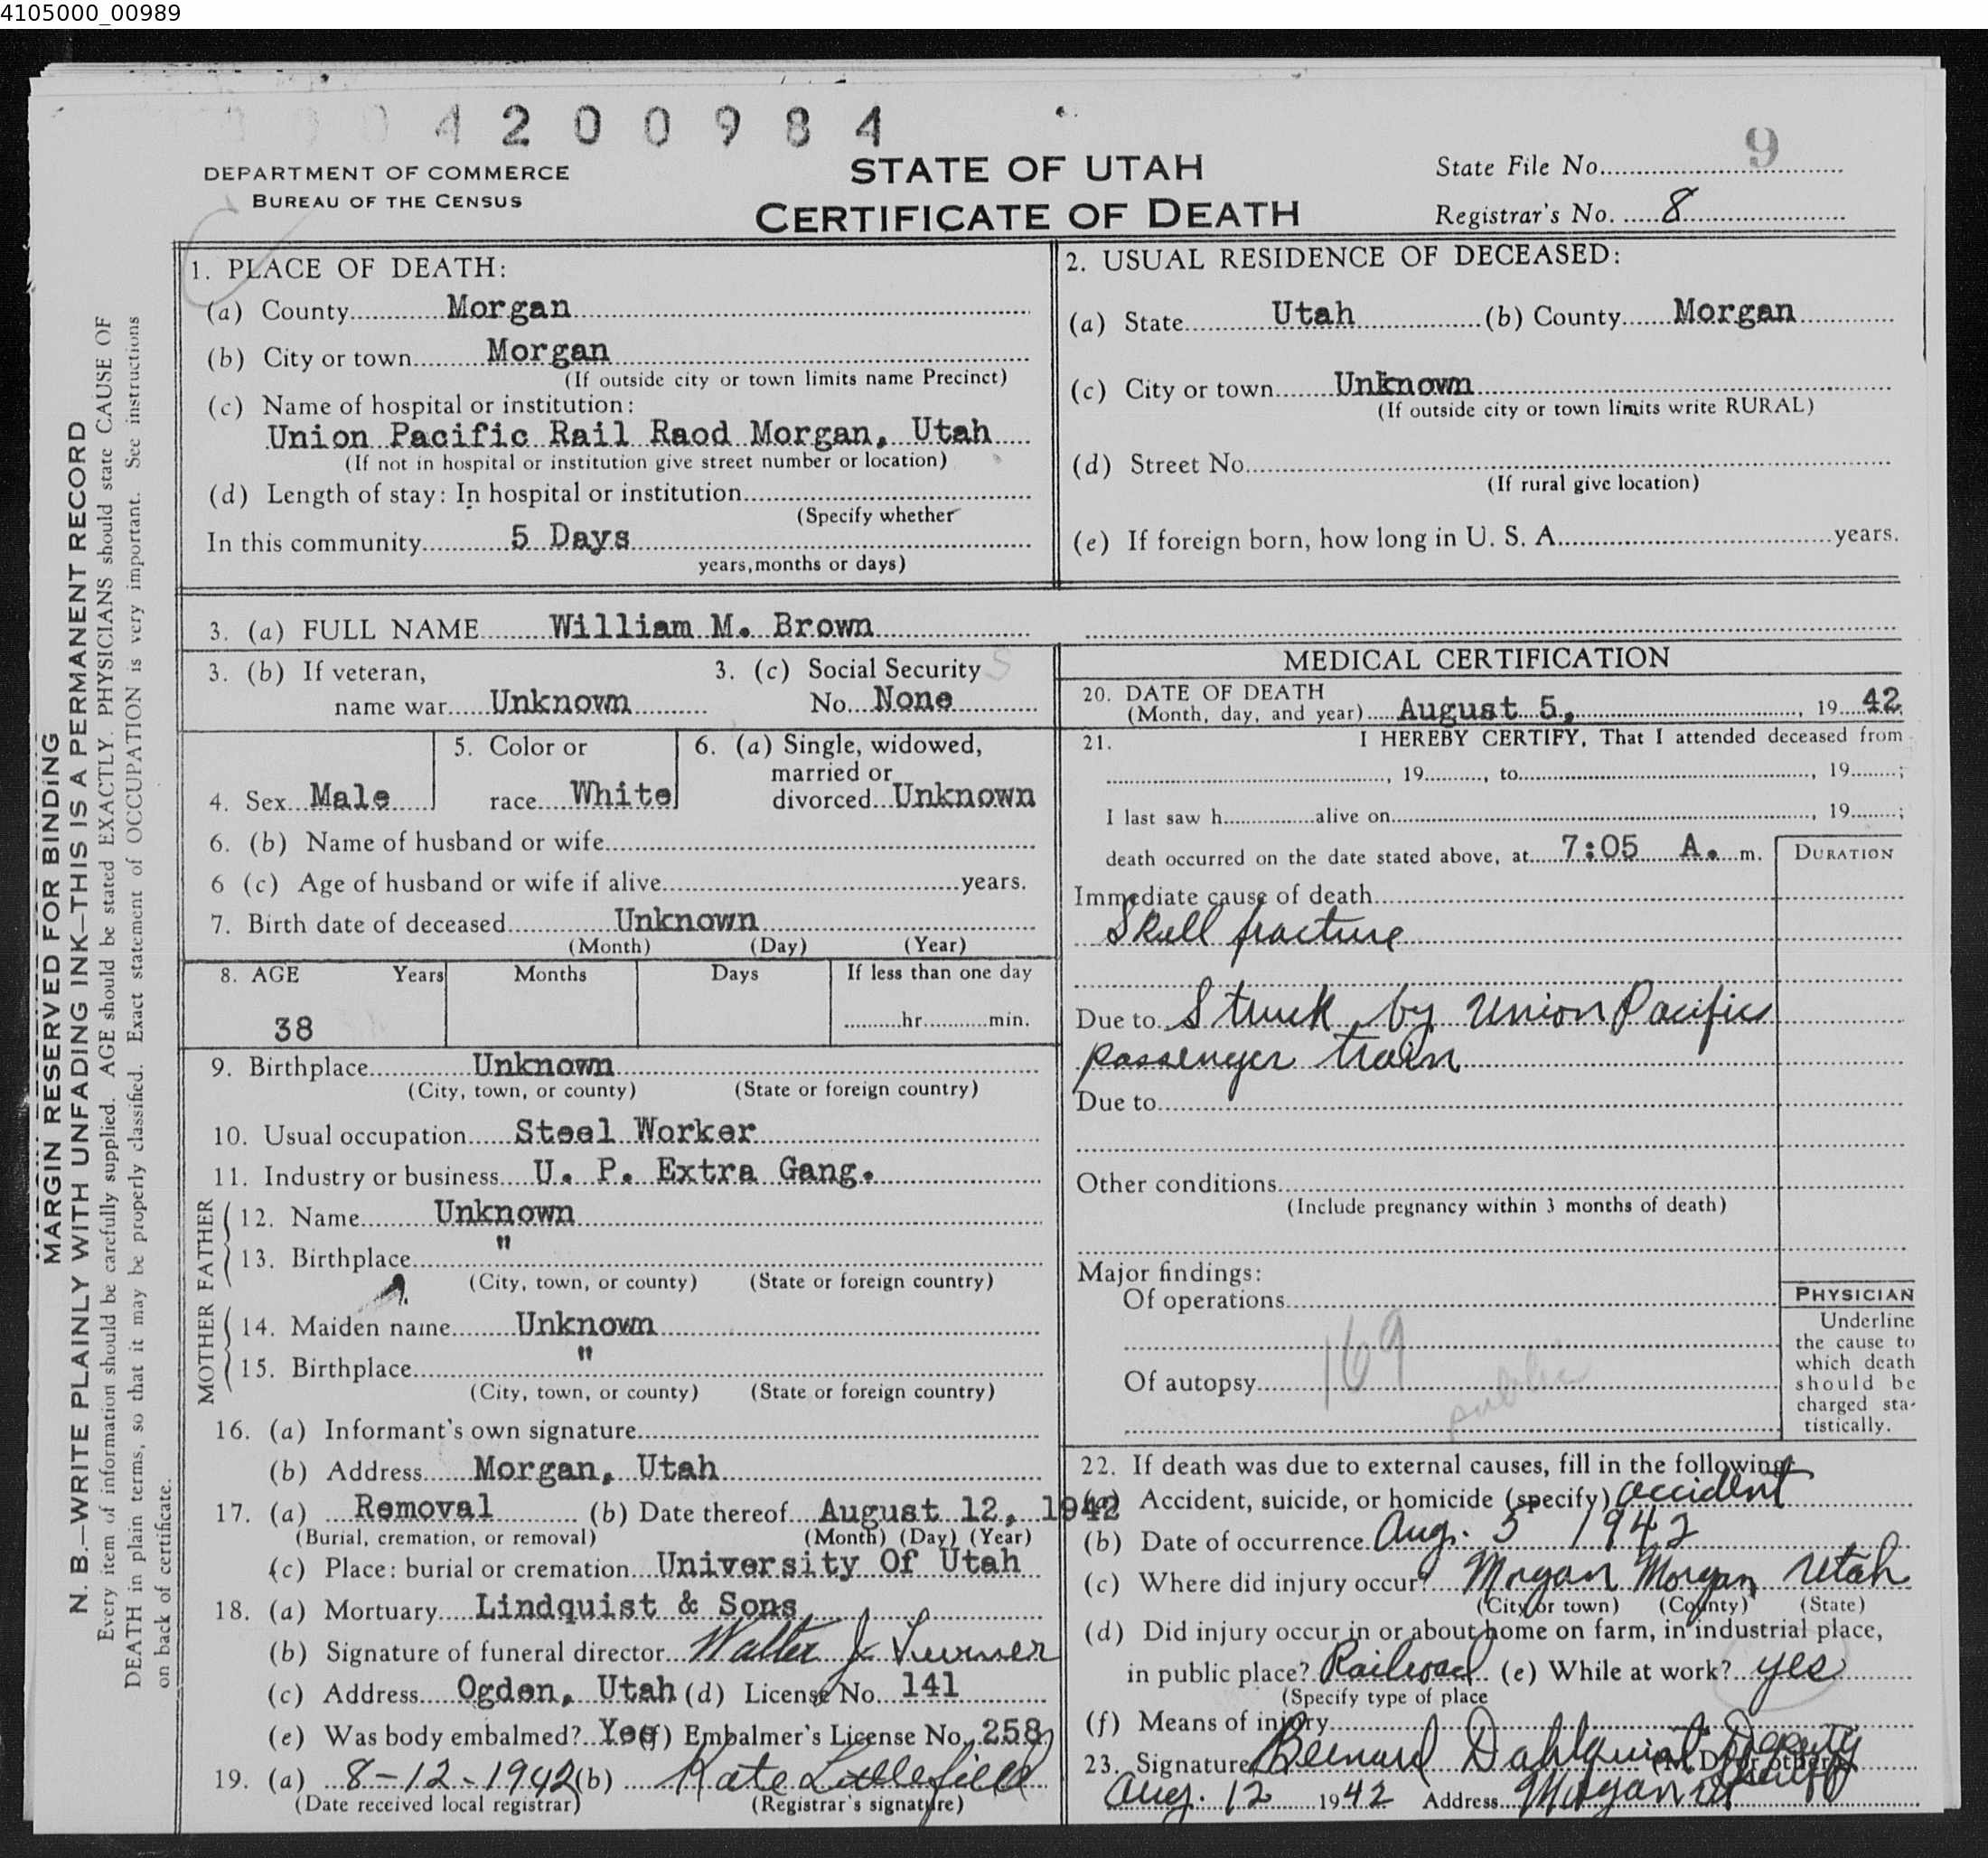 4105000_00989
4 2 0 0 9 8 4
DEPARTMENT OF COMMERCE
BUREAU OF THE CENSUS
STATE OF UTAH
CERTIFICATE OF DEATH
State File No. 9
Registrar's No. 8
MARGIN RESERVED FOR BINDING
N. B.—WRITE PLAINLY WITH UNFADING INK—THIS IS A PERMANENT RECORD
Every item of information should be carefully supplied. AGE should be stated EXACTLY. PHYSICIANS should state CAUSE OF
DEATH in plain terms, so that it may be properly classified. Exact statement of OCCUPATION is very important. See instructions
on back of certificate.
1. PLACE OF DEATH:
(a) County Morgan
(b) City or town Morgan
(If outside city or town limits name Precinct)
(c) Name of hospital or institution:
Union Pacific Rail Raod Morgan, Utah
(If not in hospital or institution give street number or location)
(d) Length of stay: In hospital or institution
(Specify whether
In this community 5 Days
years, months or days)
2. USUAL RESIDENCE OF DECEASED:
(a) State Utah (b) County Morgan
(c) City or town Unknown
(If outside city or town limits write RURAL)
(d) Street No.
(If rural give location)
(e) If foreign born, how long in U. S. A. years.
3. (a) FULL NAME William M. Brown
3. (b) If veteran,
name war Unknown
3. (c) Social Security
No. None
4. Sex Male
5. Color or
race White
6. (a) Single, widowed,
married or
divorced Unknown
6. (b) Name of husband or wife
6 (c) Age of husband or wife if alive years.
7. Birth date of deceased Unknown
(Month) (Day) (Year)
8. AGE Years Months Days If less than one day
38 hr. min.
9. Birthplace Unknown
(City, town, or county) (State or foreign country)
10. Usual occupation Steel Worker
11. Industry or business U. P. Extra Gang.
FATHER
12. Name Unknown
13. Birthplace "
(City, town, or county) (State or foreign country)
MOTHER
14. Maiden name Unknown
15. Birthplace "
(City, town, or county) (State or foreign country)
16. (a) Informant's own signature
(b) Address Morgan, Utah
17. (a) Removal (b) Date thereof August 12, 1942
(Burial, cremation, or removal) (Month) (Day) (Year)
(c) Place: burial or cremation University Of Utah
18. (a) Mortuary Lindquist & Sons
(b) Signature of funeral director Walter J Turner
(c) Address Ogden, Utah (d) License No. 141
(e) Was body embalmed? Yes (f) Embalmer's License No. 258
19. (a) 8-12-1942 (b) Kate Littlefield
(Date received local registrar) (Registrar's signature)
MEDICAL CERTIFICATION
20. DATE OF DEATH
(Month, day, and year) August 5, , 19 42
21. I HEREBY CERTIFY, That I attended deceased from
, 19 , to , 19 ;
I last saw h alive on , 19 ;
death occurred on the date stated above, at 7:05 A. m.
DURATION
Immediate cause of death
Skull fracture
Due to Struck by Union Pacific
passenger train
Due to
Other conditions
(Include pregnancy within 3 months of death)
Major findings:
Of operations
169
Of autopsy
public
PHYSICIAN
Underline
the cause to
which death
should be
charged sta-
tistically.
22. If death was due to external causes, fill in the following:
(a) Accident, suicide, or homicide (specify) accident
(b) Date of occurrence Aug. 5 1942
(c) Where did injury occur? Morgan Morgan Utah
(City or town) (County) (State)
(d) Did injury occur in or about home on farm, in industrial place,
in public place? Railroad (e) While at work? yes
(Specify type of place
(f) Means of injury
23. Signature Bernard Dahlquist Deputy
(M. D. or other) Sheriff
Aug. 12 1942 Address Morgan Ut